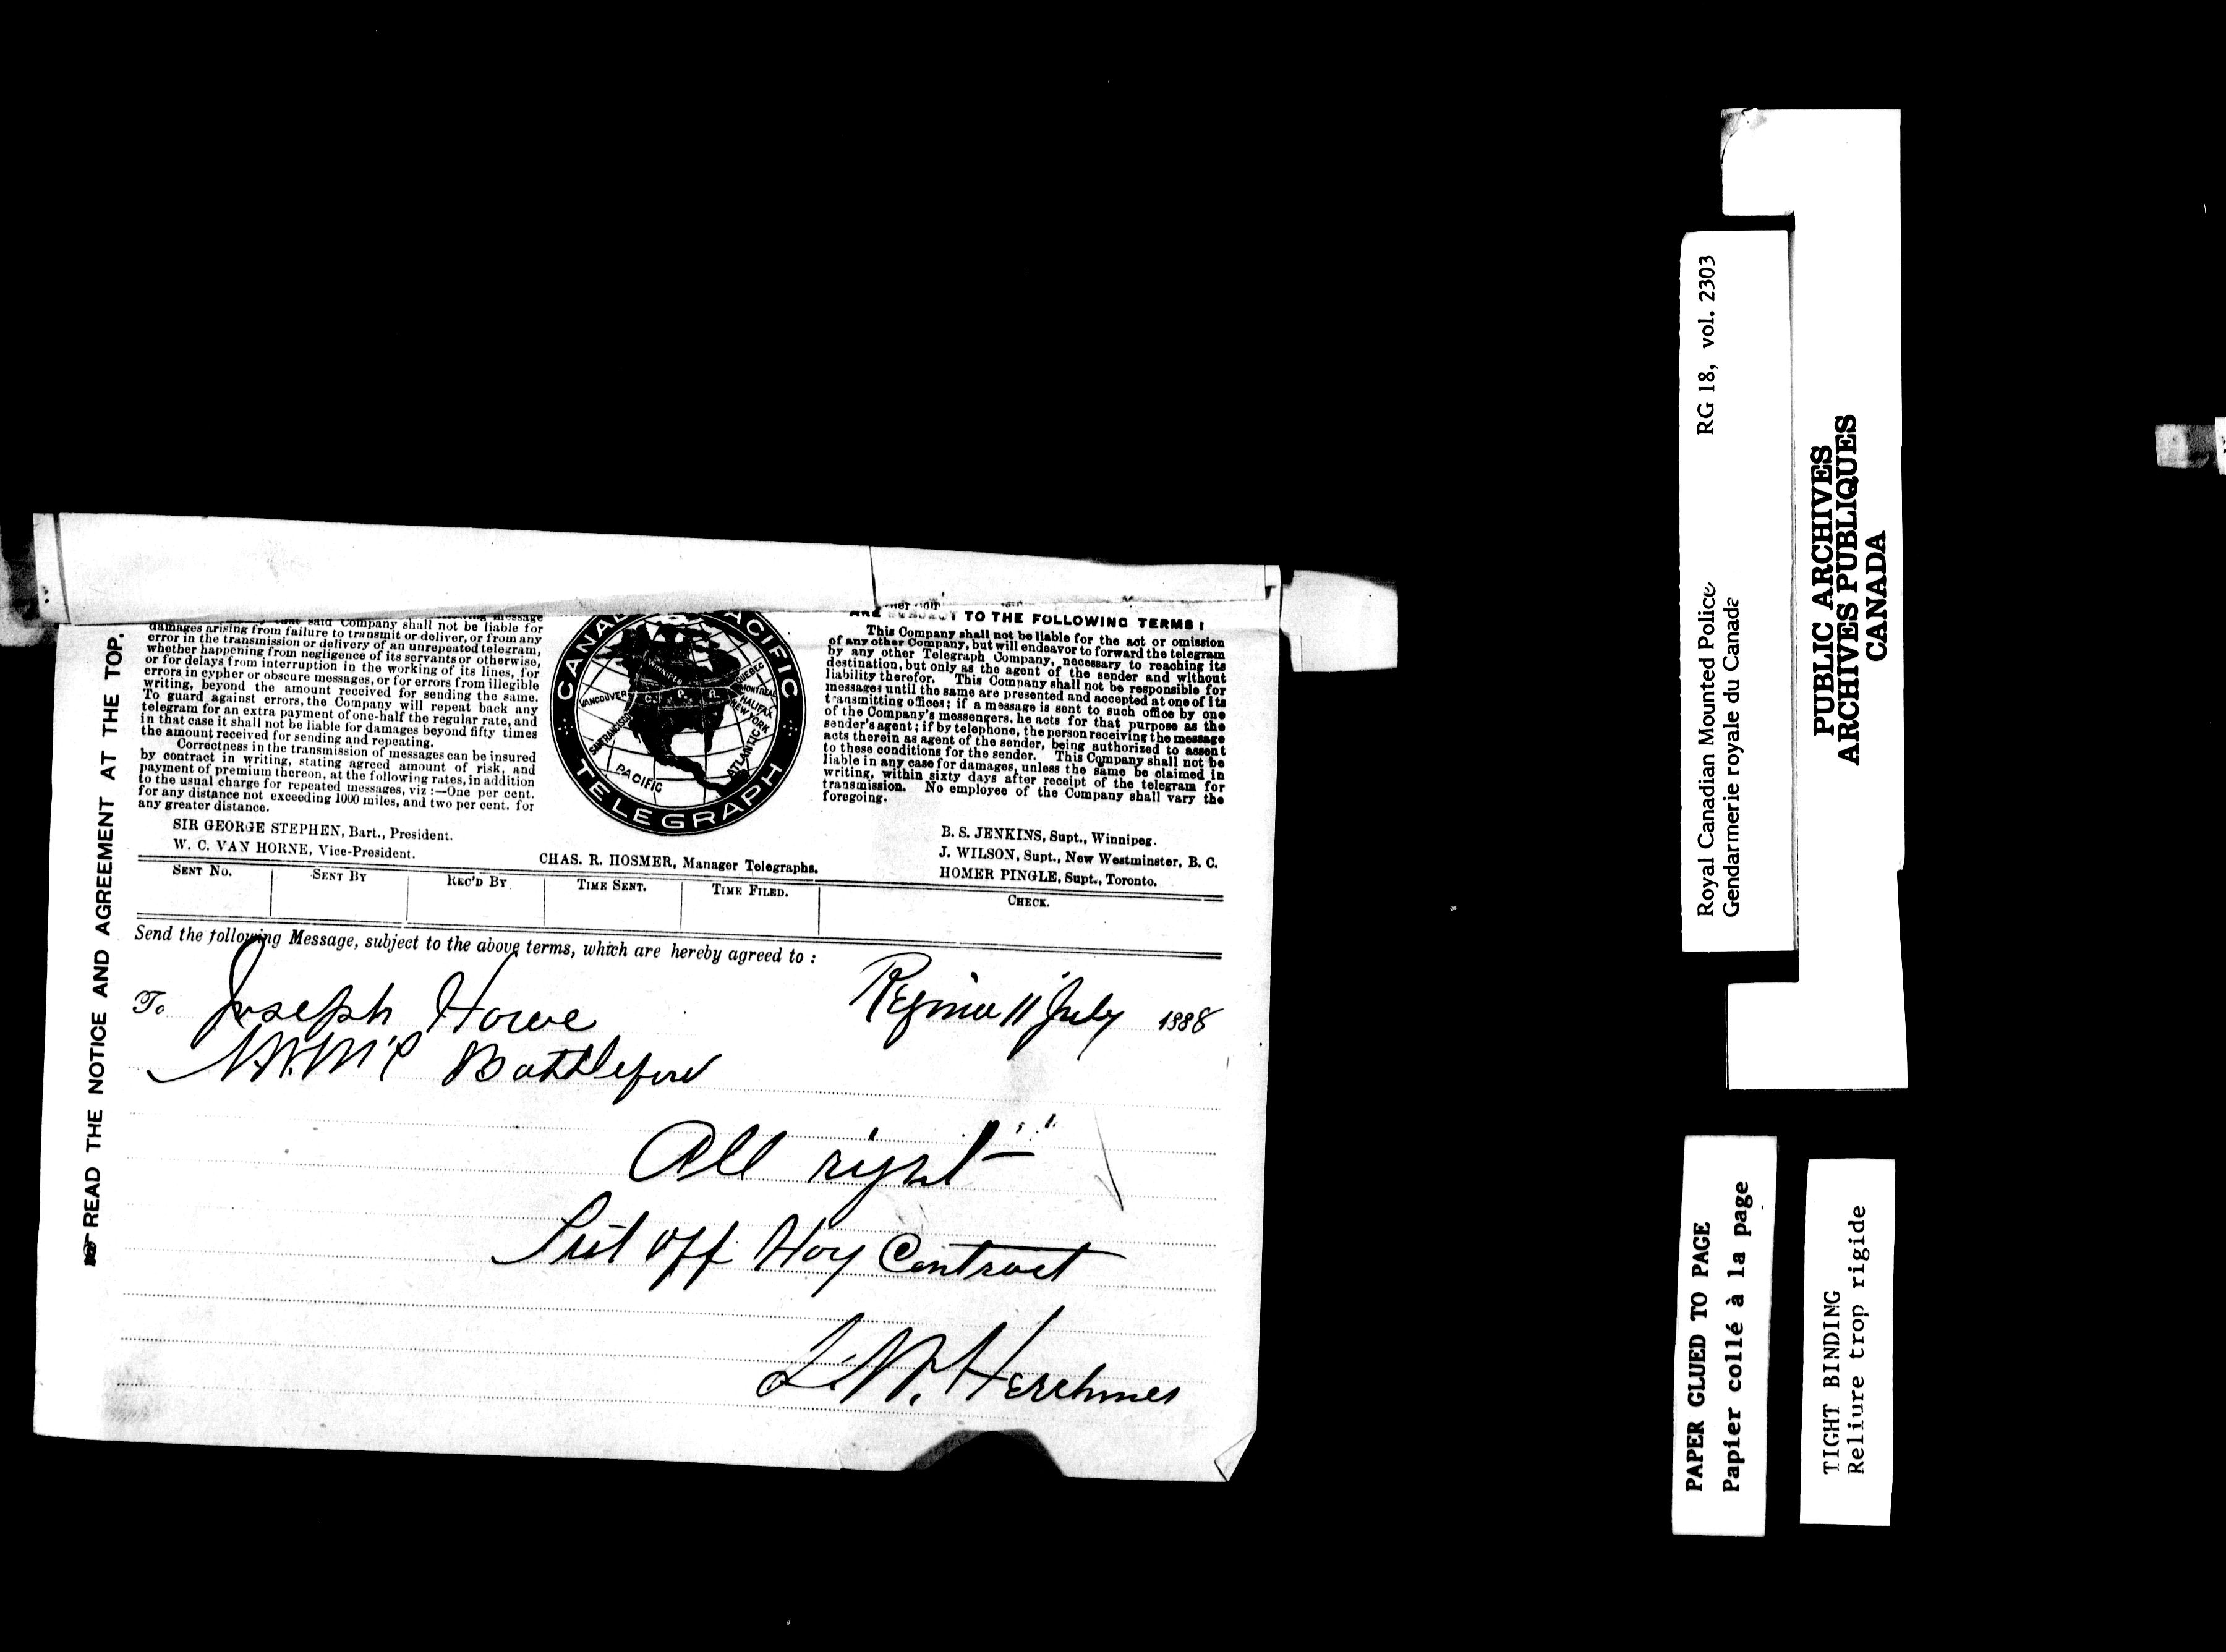 READ THE NOTICE AND AGREEMENT AT THE TOP.
said Company shall not be liable for message
damages arising from failure to transmit or deliver, or from any
error in the transmission or delivery of an unrepeated telegram,
whether happening from negligence of its servants or otherwise,
or for delays from interruption in the working of its lines, for
errors in cypher or obscure messages, or for errors from illegible
writing, beyond the amount received for sending the same.
To guard against errors, the Company will repeat back any
telegram for an extra payment of one-half the regular rate, and
in that case it shall not be liable for damages beyond fifty times
the amount received for sending and repeating.
Correctness in the transmission of messages can be insured
by contract in writing, stating agreed amount of risk, and
payment of premium thereon, at the following rates, in addition
to the usual charge for repeated messages, viz :—One per cent.
for any distance not exceeding 1000 miles, and two per cent. for
any greater distance.
SIR GEORGE STEPHEN, Bart., President.
W. C. VAN HORNE, Vice-President.
PACIFIC
TELEGRAPH
WINNIPEG
QUEBEC
MONTREAL
VANCOUVER
C. P. R.
HALIFAX
NEW YORK
SAN FRANCISCO
ATLANTIC
PACIFIC
CHAS. R. HOSMER, Manager Telegraphs.
ARE SUBJECT TO THE FOLLOWING TERMS :
This Company shall not be liable for the act or omission
of any other Company, but will endeavor to forward the telegram
by any other Telegraph Company, necessary to reaching its
destination, but only as the agent of the sender and without
liability therefor. This Company shall not be responsible for
messages until the same are presented and accepted at one of its
transmitting offices; if a message is sent to such office by one
of the Company's messengers, he acts for that purpose as the
sender's agent; if by telephone, the person receiving the message
acts therein as agent of the sender, being authorized to assent
to these conditions for the sender. This Company shall not be
liable in any case for damages, unless the same be claimed in
writing, within sixty days after receipt of the telegram for
transmission. No employee of the Company shall vary the
foregoing.
B. S. JENKINS, Supt., Winnipeg.
J. WILSON, Supt., New Westminster, B. C.
HOMER PINGLE, Supt., Toronto.
SENT NO. SENT BY REC'D BY TIME SENT. TIME FILED. CHECK.
Send the following Message, subject to the above terms, which are hereby agreed to :
To Joseph Howe Regina 11 July 1888
N.W.M.P Battleford
All right
Put off Hay Contract
L.W. Herchmer
RG 18, vol. 2303
Royal Canadian Mounted Police
Gendarmerie royale du Canada
PUBLIC ARCHIVES
ARCHIVES PUBLIQUES
CANADA
PAPER GLUED TO PAGE
Papier collé à la page
TIGHT BINDING
Reliure trop rigide